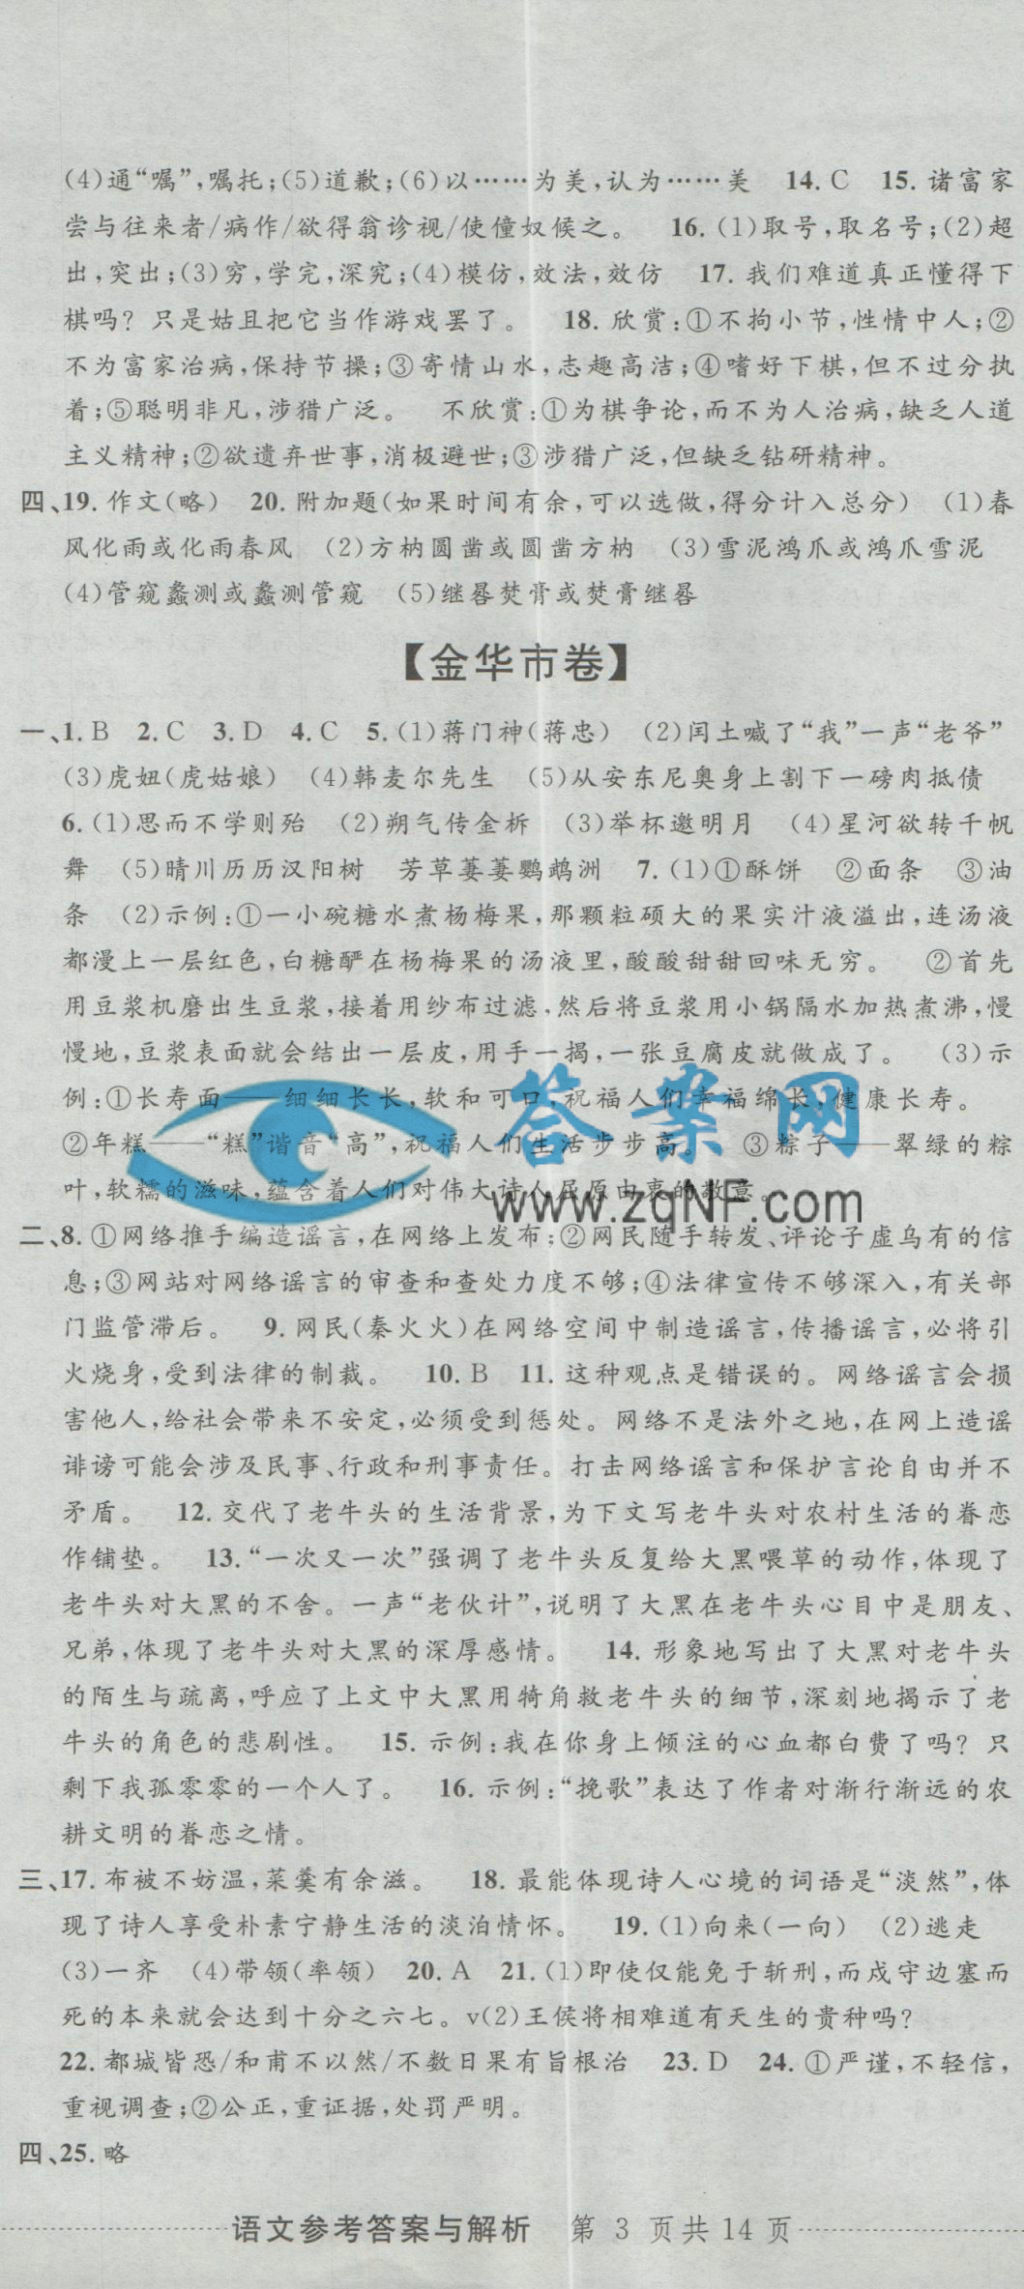 (4)通“嘱”,嘱托;(5)道歉;(6)以……为美,认为……美 14. C 15. 诸富家
尝与往来者/病作/欲得翁诊视/使僮奴候之。 16. (1)取号,取名号;(2)超
出,突出;(3)穷,学完,深究;(4)模仿,效法,效仿 17. 我们难道真正懂得下
棋吗? 只是姑且把它当作游戏罢了。 18. 欣赏:①不拘小节,性情中人;②
不为富家治病,保持节操;③寄情山水,志趣高洁;④嗜好下棋,但不过分执
着;⑤聪明非凡,涉猎广泛。 不欣赏:①为棋争论,而不为人治病,缺乏人道
主义精神;②欲遗弃世事,消极避世;③涉猎广泛,但缺乏钻研精神。
四、19. 作文(略) 20. 附加题(如果时间有余,可以选做,得分计入总分) (1)春
风化雨或化雨春风 (2)方枘圆凿或圆凿方枘 (3)雪泥鸿爪或鸿爪雪泥
(4)管窥蠡测或蠡测管窥 (5)继晷焚膏或焚膏继晷
【金华市卷】
一、1. B 2. C 3. D 4. C 5. (1)蒋门神(蒋忠) (2)闰土喊了“我”一声“老爷”
(3)虎妞(虎姑娘) (4)韩麦尔先生 (5)从安东尼奥身上割下一磅肉抵债
6. (1)思而不学则殆 (2)朔气传金柝 (3)举杯邀明月 (4)星河欲转千帆
舞 (5)晴川历历汉阳树 芳草萋萋鹦鹉洲 7. (1)①酥饼 ②面条 ③油
条 (2)示例:①一小碗糖水煮杨梅果,那颗粒硕大的果实汁液溢出,连汤液
都漫上一层红色,白糖酽在杨梅果的汤液里,酸酸甜甜回味无穷。 ②首先
用豆浆机磨出生豆浆,接着用纱布过滤,然后将豆浆用小锅隔水加热煮沸,慢
慢地,豆浆表面就会结出一层皮,用手一揭,一张豆腐皮就做成了。 (3)示
例:①长寿面——细细长长,软和可口,祝福人们幸福绵长,健康长寿。
②年糕——“糕”谐音“高”,祝福人们生活步步高。 ③粽子——翠绿的粽
叶,软糯的滋味,蕴含着人们对伟大诗人屈原由衷的敬意。
答案网
www.zqNF.com
二、8. ①网络推手编造谣言,在网络上发布;②网民随手转发、评论子虚乌有的信
息;③网站对网络谣言的审查和查处力度不够;④法律宣传不够深入,有关部
门监管滞后。 9. 网民(秦火火)在网络空间中制造谣言,传播谣言,必将引
火烧身,受到法律的制裁。 10. B 11. 这种观点是错误的。网络谣言会损
害他人,给社会带来不安定,必须受到惩处。网络不是法外之地,在网上造谣
诽谤可能会涉及民事、行政和刑事责任。打击网络谣言和保护言论自由并不
矛盾。 12. 交代了老牛头的生活背景,为下文写老牛头对农村生活的眷恋
作铺垫。 13. “一次又一次”强调了老牛头反复给大黑喂草的动作,体现了
老牛头对大黑的不舍。一声“老伙计”,说明了大黑在老牛头心目中是朋友、
兄弟,体现了老牛头对大黑的深厚感情。 14. 形象地写出了大黑对老牛头
的陌生与疏离,呼应了上文中大黑用犄角救老牛头的细节,深刻地揭示了老
牛头的角色的悲剧性。 15. 示例:我在你身上倾注的心血都白费了吗? 只
剩下我孤零零的一个人了。 16. 示例:“挽歌”表达了作者对渐行渐远的农
耕文明的眷恋之情。
三、17. 布被不妨温,菜羹有余滋。 18. 最能体现诗人心境的词语是“淡然”,体
现了诗人享受朴素宁静生活的淡泊情怀。 19. (1)向来(一向) (2)逃走
(3)一齐 (4)带领(率领) 20. A 21. (1)即使仅能免于斩刑,而戍守边塞而
死的本来就会达到十分之六七。v(2)王侯将相难道有天生的贵种吗?
22. 都城皆恐/和甫不以然/不数日果有旨根治 23. D 24. ①严谨,不轻信,
重视调查;②公正,重证据,处罚严明。
四、25. 略
语文参考答案与解析 第 3 页共 14 页